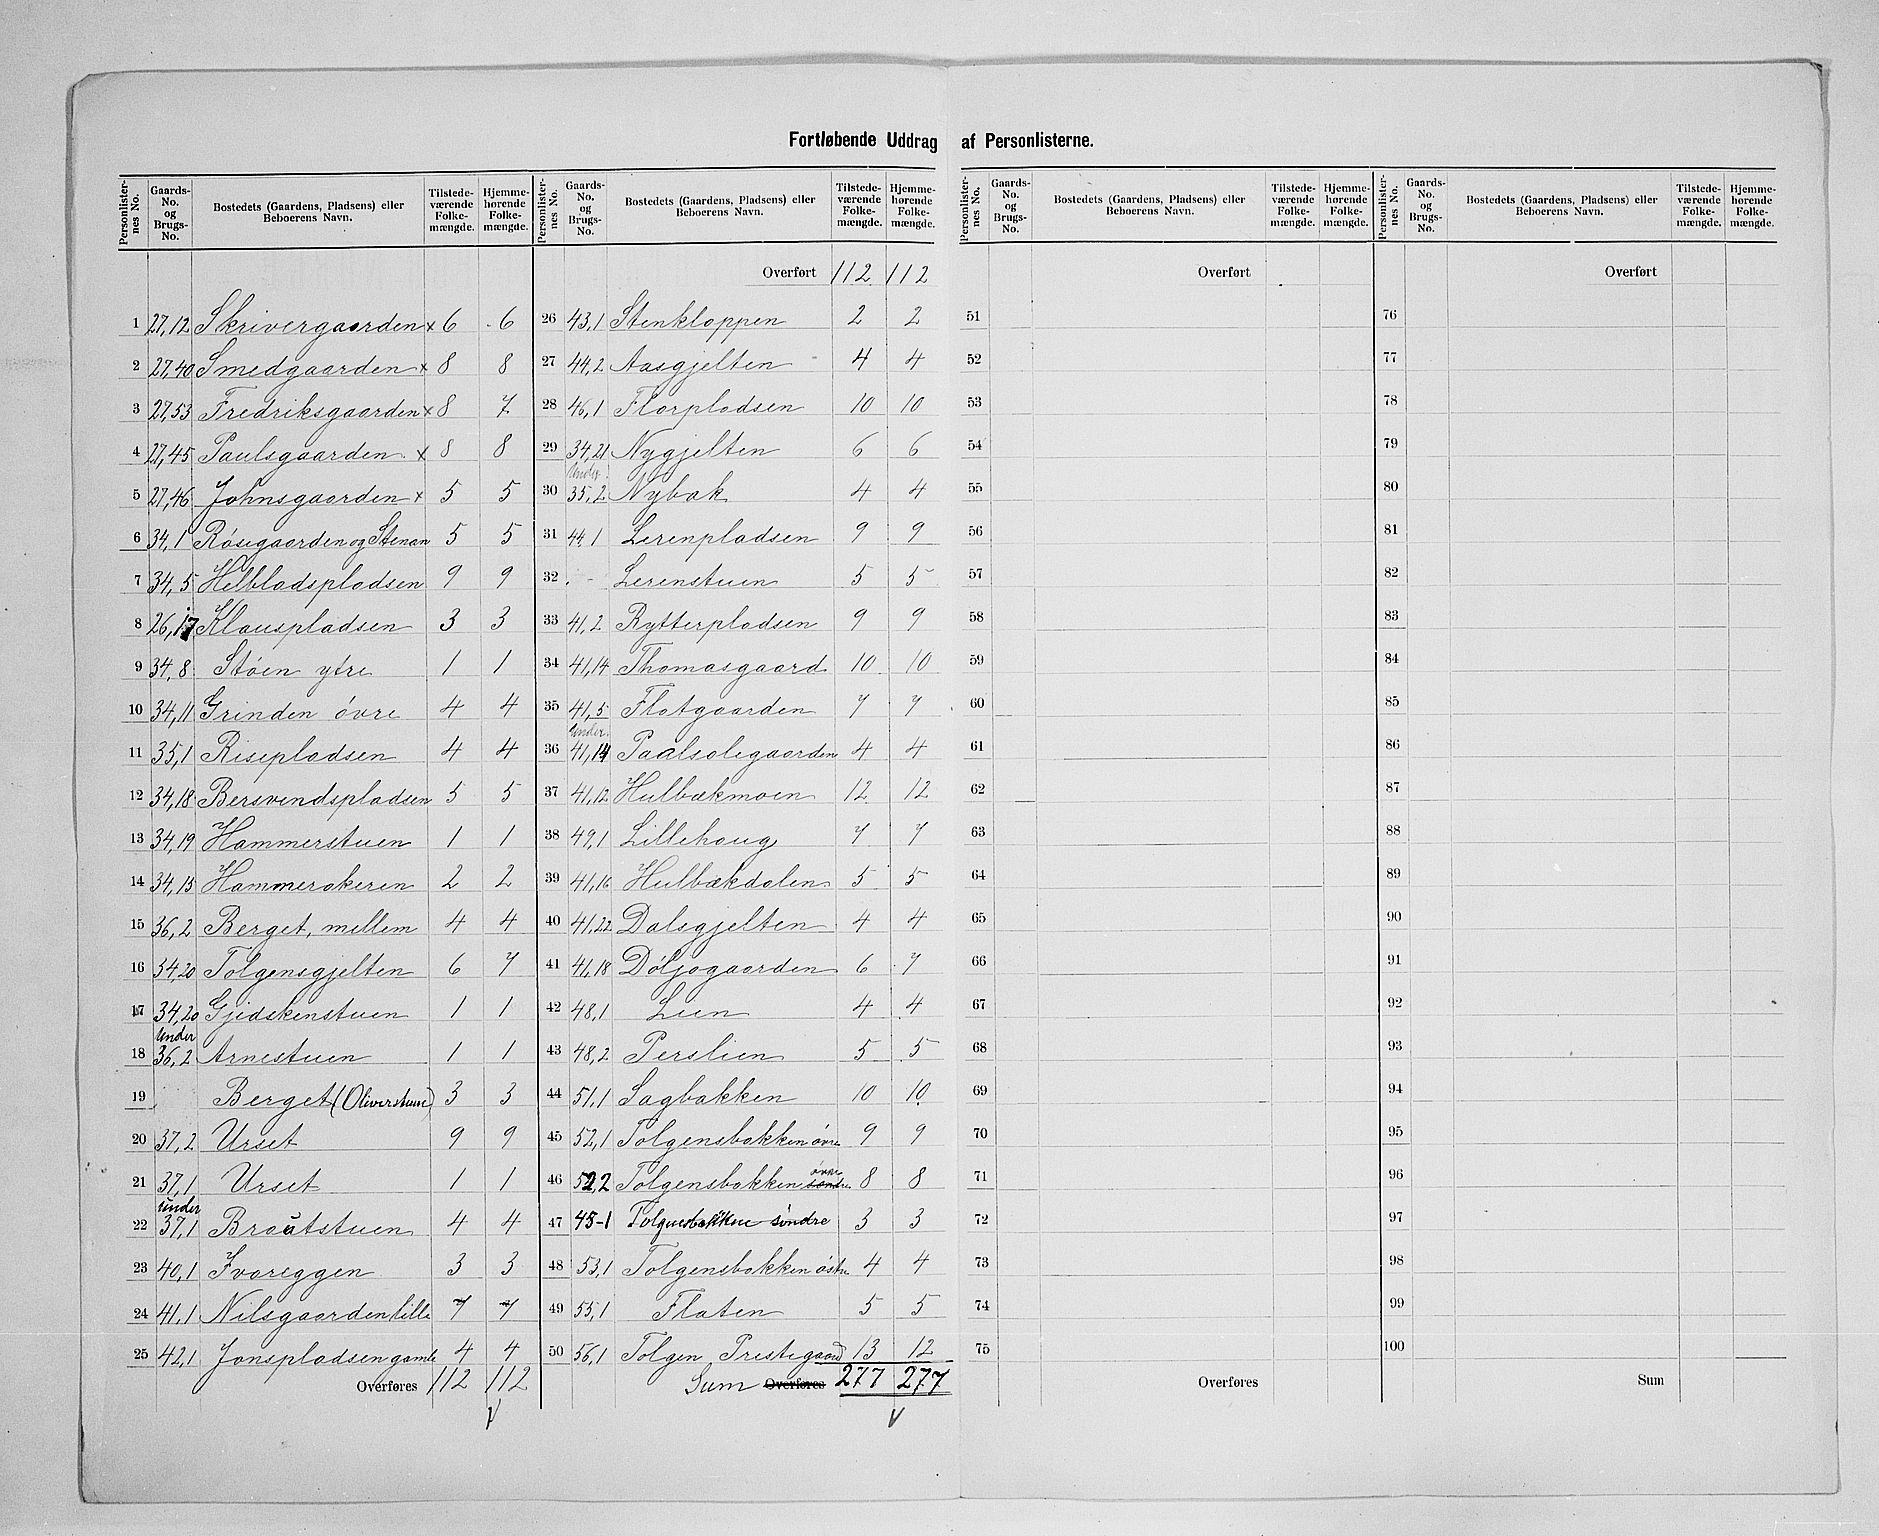 Fortløbende Uddrag af Personlisterne.
Personlister-nes No. | Gaards-No. og Brugs-No. | Bostedets (Gaardens, Pladsens) eller Beboerens Navn. | Tilstede-værende Folke-mængde. | Hjemme-hørende Folke-mængde.
Personlister-nes No. | Gaards-No. og Brugs-No. | Bostedets (Gaardens, Pladsens) eller Beboerens Navn. | Tilstede-værende Folke-mængde. | Hjemme-hørende Folke-mængde.
Personlister-nes No. | Gaards-No. og Brugs-No. | Bostedets (Gaardens, Pladsens) eller Beboerens Navn. | Tilstede-værende Folke-mængde. | Hjemme-hørende Folke-mængde.
Personlister-nes No. | Gaards-No. og Brugs-No. | Bostedets (Gaardens, Pladsens) eller Beboerens Navn. | Tilstede-værende Folke-mængde. | Hjemme-hørende Folke-mængde.
1 27,12 Skrivergaarden x 6 6
2 27,40 Smedgaarden x 8 8
3 27,53 Fredriksgaarden x 8 7
4 27,45 Paulsgaarden x 8 8
5 27,46 Johnsgaarden x 5 5
6 34,1 Røsegaarden og Stenan 5 5
7 34,5 Helbladspladsen 9 9
8 26,17 Klauspladsen 3 3
9 34,8 Støen ytre 1 1
10 34,11 Grinden øvre 4 4
11 35,1 Risepladsen 4 4
12 34,18 Bersvendspladsen 5 5
13 34,19 Hammerstuen 1 1
14 34,15 Hammerakeren 2 2
15 36,2 Berget, mellem 4 4
16 34,20 Tolgensgjelten 6 7
17 34,20 Gjedskenstuen 1 1
18 Under 36,2 Arnestuen 1 1
19 Berget (Oliverstuen) 3 3
20 37,2 Urset 9 9
21 37,1 Urset 1 1
22 Under 37,1 Brautstuen 4 4
23 40,1 Kvareggen 3 3
24 41,1 Nilsgaarden lille 7 7
25 42,1 Jonspladsen gamle 4 4
Overføres 112 112
Overført 112 112
26 43,1 Stenkloppen 2 2
27 44,2 Aasgjelten 4 4
28 46,1 Florpladsen 10 10
29 34,21 Nygjelten 6 6
30 Under 35,2 Nybak 4 4
31 44,1 Lerenpladsen 9 9
32 - Lerenstuen 5 5
33 41,2 Rytterpladsen 9 9
34 41,14 Thomasgaard 10 10
35 41,5 Flotgaarden 7 7
36 Under 41,14 Paalsolegaarden 4 4
37 41,12 Hulbækmoen 12 12
38 49,1 Lillehaug 7 7
39 41,16 Hulbækdalen 5 5
40 41,22 Dalsgjelten 4 4
41 41,18 Døljogaarden 6 7
42 48,1 Lien 4 4
43 48,2 Perslien 5 5
44 51,1 Sagbakken 10 10
45 52,1 Tolgensbakken øvre 9 9
46 52,2 Tolgensbakken søndre øvre 8 8
47 45-1 Tolgensbakken søndre 3 3
48 53,1 Tolgensbakken østre 4 4
49 55,1 Flaten 5 5
50 56,1 Tolgen Prestegaard 13 12
Sum Overføres 277 277
Overført
51
52
53
54
55
56
57
58
59
60
61
62
63
64
65
66
67
68
69
70
71
72
73
74
75
Overføres
Overført
76
77
78
79
80
81
82
83
84
85
86
87
88
89
90
91
92
93
94
95
96
97
98
99
100
Sum